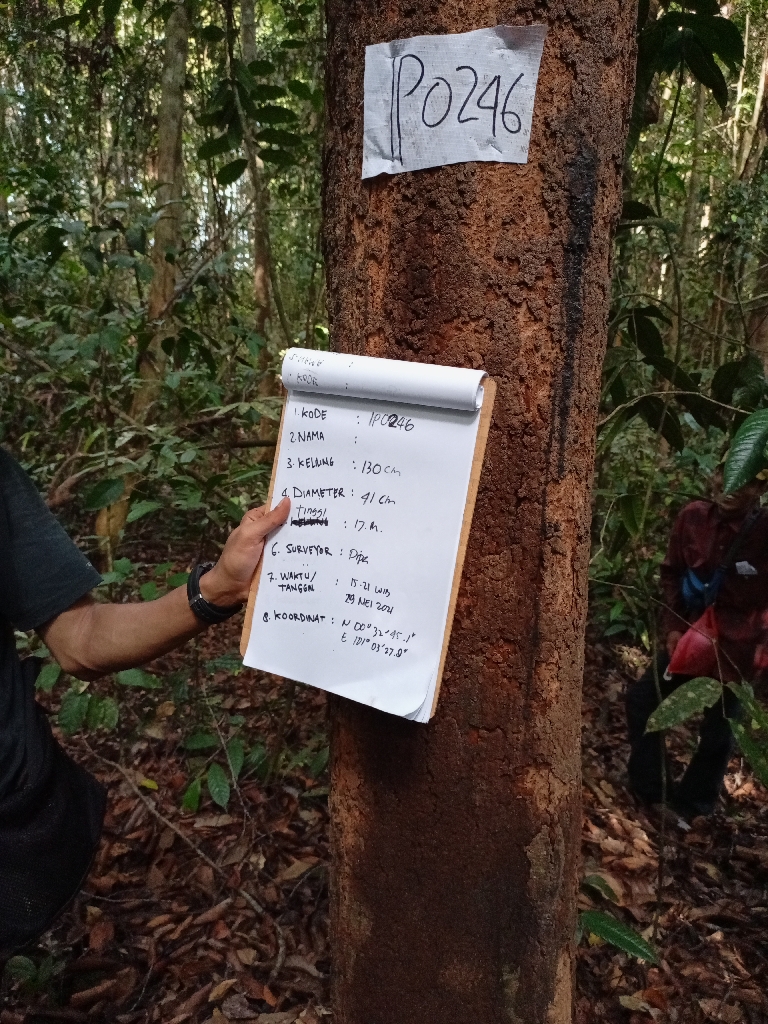 IPO246
KODE :
1. KODE : IPO246
2. NAMA :
3. KELILING : 130 cm
4. DIAMETER : 41 cm
Tinggi : 17. m
6. SURVEYOR : Pipe
7. WAKTU/ : 15.21 WIB
TANGGAL 29 MEI 2021
8. KOORDINAT : N 00° 32' 45.1"
E 101° 03' 27.8"